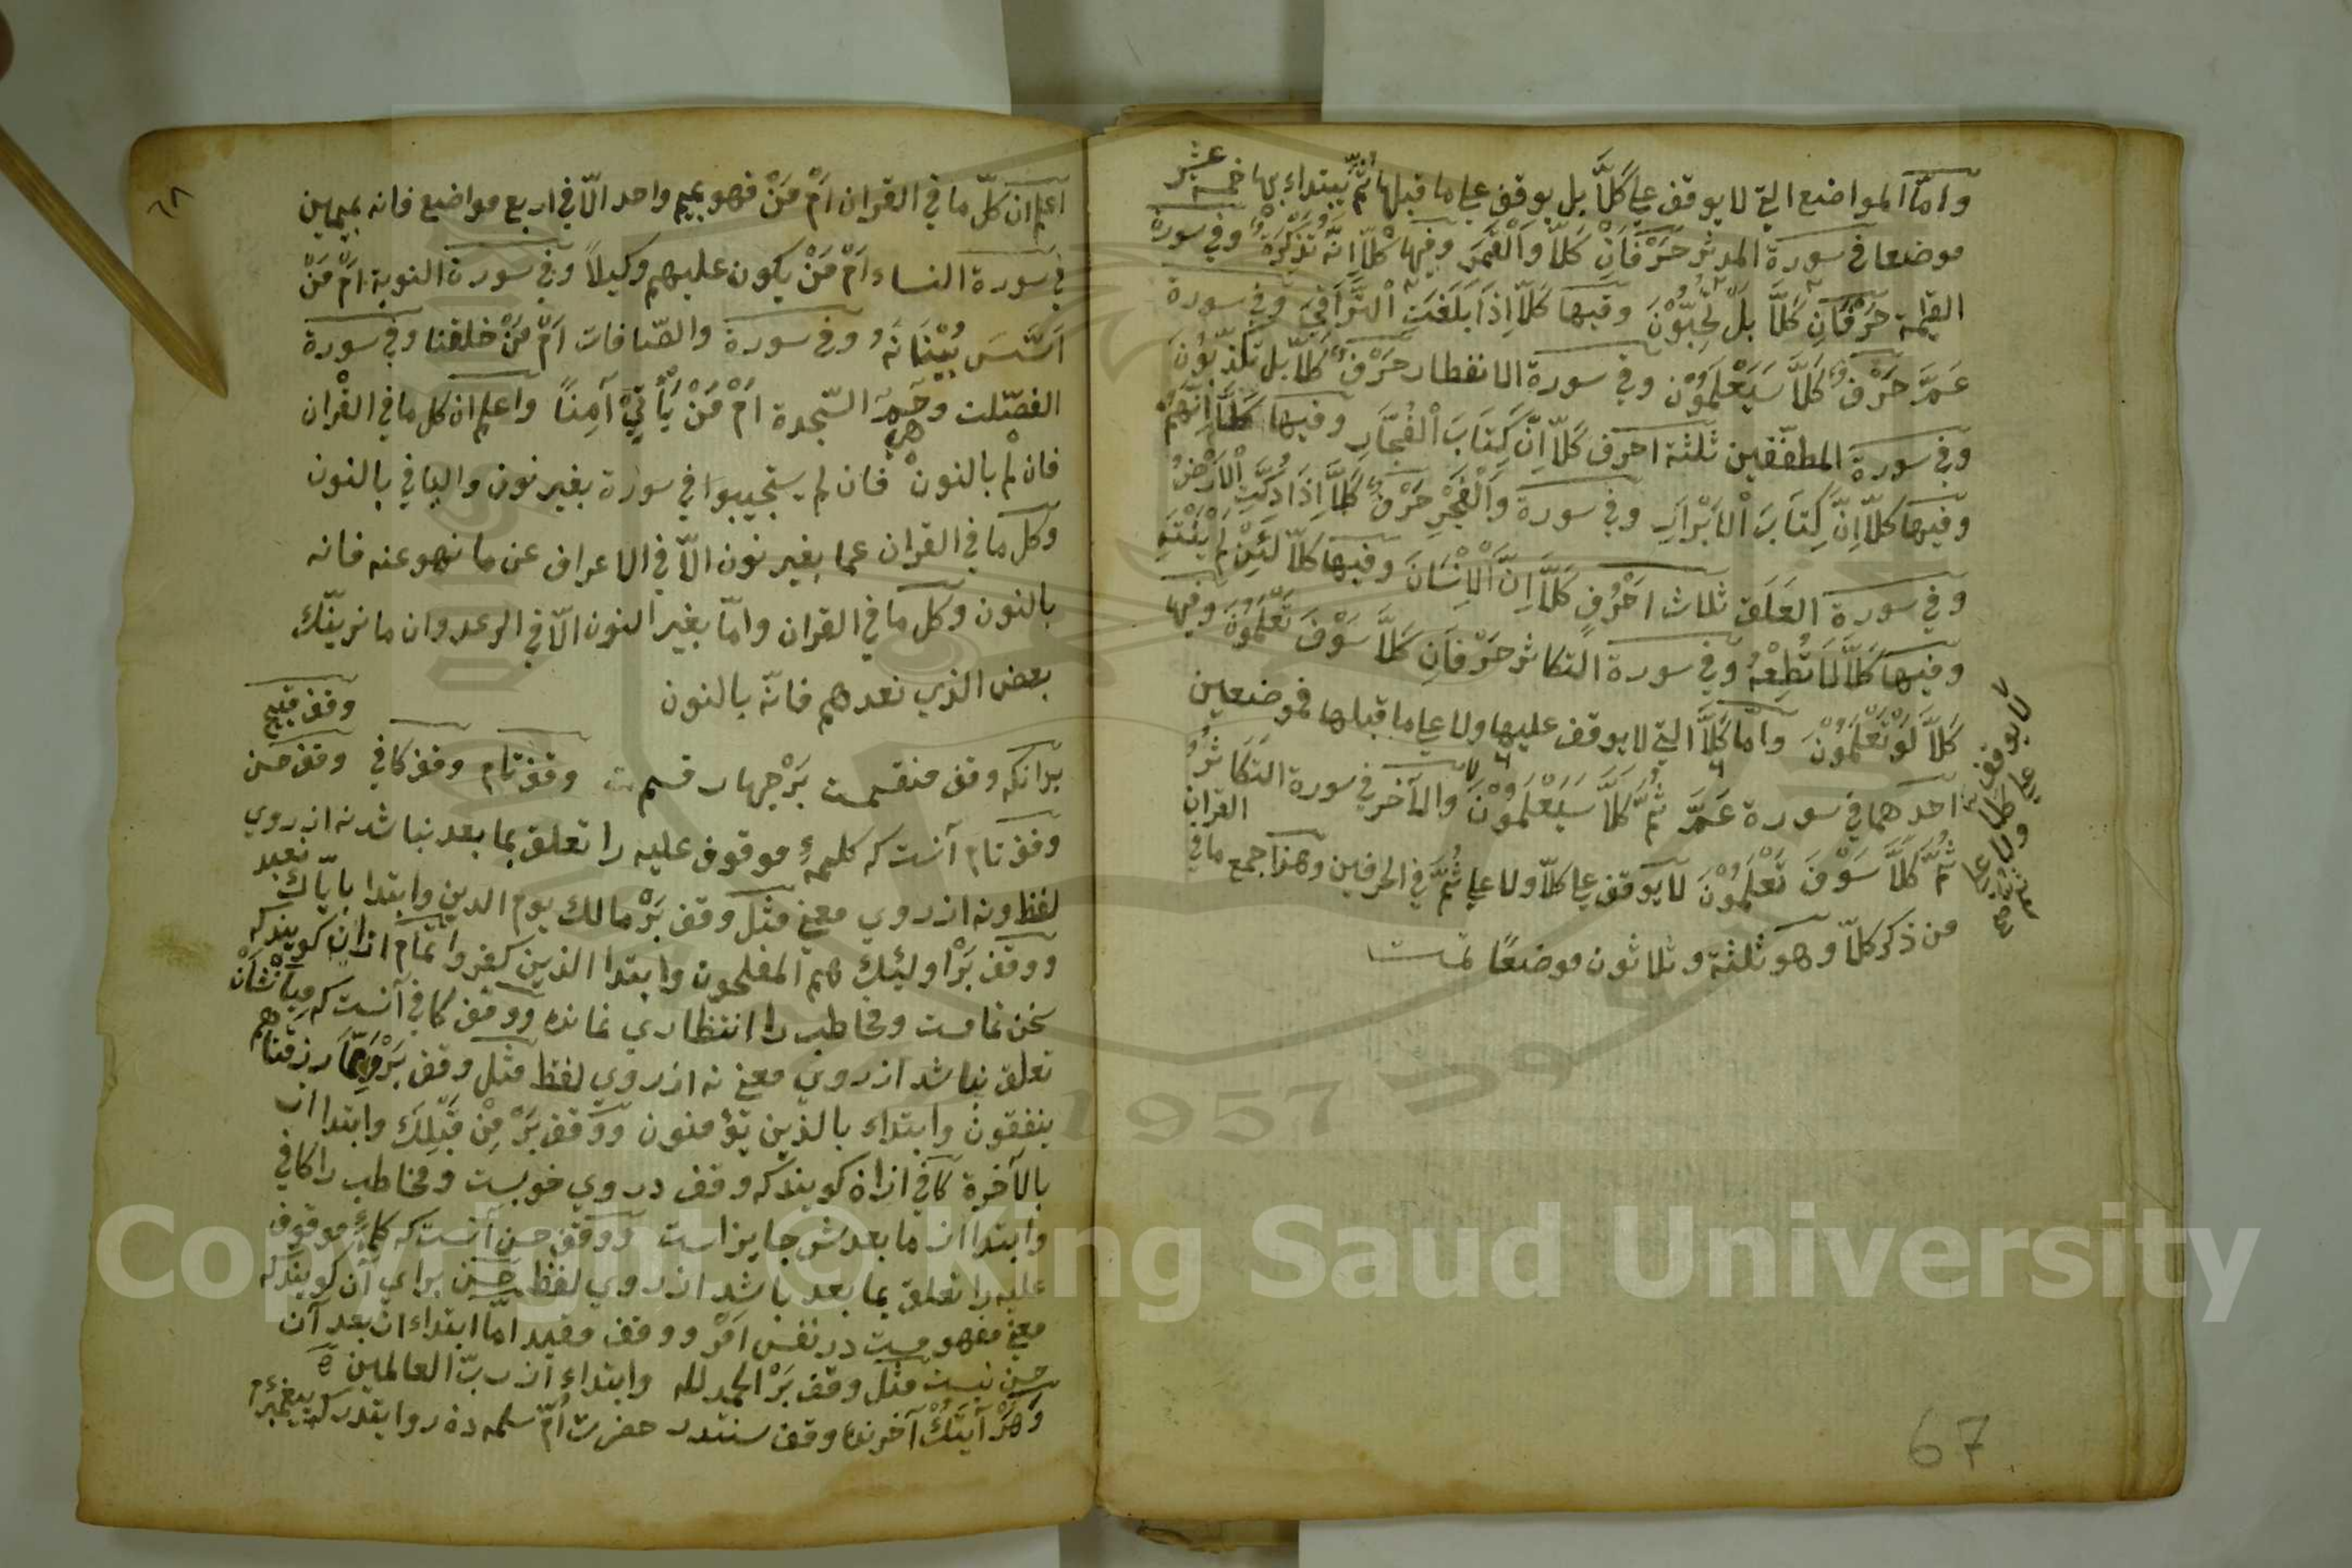 وامّا المواضع التي لا يوقف على كَلَّا بل يوقف على ما قبلها ثُمَّ يبتداء بها خمسة عشر
موضعا في سورة المدثر حَرْفَانِ كَلَّا وَالْقَمَرِ وفيها كَلَّا اِنَّهُ تَذْكِرَةٌ وفي سورة
القيمة حَرْفَانِ كَلَّا بَلْ تُحِبُّوْنَ وفيها كَلَّا اِذَا بَلَغَتِ الْتَّرَاقِيَ وفي سورة
عَمَّ حَرْفٌ كَلَّا سَيَعْلَمُوْنَ وفي سورة الانفطار حَرْفٌ كَلَّا بل تكذّبُوْنَ
وفي سورة المطففين ثلثة احرف كَلَّا اِنَّ كِتَابَ اْلفُجَّارِ وفيها كَلَّا اِنَّهُمْ
وفيها كلّا اِنَّ كِتَابَ اْلاَبْرَارِ وفي سورة وَالْفَجْرِ حَرْفٌ كَلَّا اِذَا دُكَّتِ اْلاَرْضُ
وفي سورة العَلَق ثلاث اَحْرُفٍ كَلَّا اِنَّ اْلاِنْسَانَ وفيها كَلَّا لَئِنْ لَمْ يَنْتَهِ
وفيها كَلَّا لَا تُطِعْهُ وفي سورة التكاثر حَرْفَانِ كَلَّا سَوْفَ تَعْلَمُوْنَ وفيها
كَلَّا لَوْ تَعْلَمُوْنَ وامّا كَلَّا التي لا يوقف عليها ولا على ما قبلها فموضعين
احدهما في سورة عَمَّ ثُمَّ كَلَّا سَيَعْلَمُوْنَ والآخر في سورة التكاثُرُ
ثُمَّ كَلَّا سَوْفَ تَعْلَمُوْنَ لا يوقف على كلّا ولا على ثُمَّ في الحرفين وهذا جمع ما في القران
من ذكر كلّا وهو ثلثة وثلاثون موضعًا تمت
لا يوقف على كلا ولا على
67
٦٨
اعلم ان كلّ ما في القران اَمْ مَنْ فهو بميم واحد الّا في اربع مواضع فانه بميمين
في سورة النساء اَمْ مَنْ يكون عليهم وكيلاً وفي سورة التوبة اَمْ مَنْ
اَسَّسَ بُنْيَانَهُ وفي سورة والصّافات اَمْ مَنْ خلقنا وفي سورة
الفصّلت وحم السّجدة اَمْ مَنْ يَأْتِيْ آمِنًا واعلم ان كل ما في القران
فان لم بالنون فان لم يستجيبوا في سورة هود بغير نون والباقي بالنون
وكل ما في القران عما بغير نون الّا في الاعراف عن ما نهو عنه فانه
بالنون وكل ما في القران وامّا بغير النون الّا في الرعد وان ما نرينّك
بعض الذي نعدهم فانّه بالنون
بدانكه وقف منقسمست بَرْ چهار قسمت وقف تام وقف كافي وقف حسن وقف قبيح
وقف تام آنست كه كلمهءِ موقوف عليه را تعلق بما بعد نباشد نه از روي
لفظ ونه از روي معني مثل وقف بَرْ مالك يوم الدين وابتدا باياك نعبد
ووقف بَرْ اولئك هم المفلحون وابتدا الذين كفروا تمام ازان كويند كه
سخن تمامست ومخاطب را انتظاري نمانده ووقف كافي آنست كه مِيَانْشَانْ
تعلق نباشد از روي معني نه از روي لفظ مثل وقف بَرْ وَمِمَّا رزقناهم
ينفقون وابتداء بالذين يؤمنون ووقف بَرْ مِنْ قَبْلِكَ وابتدا از
بالآخرة كافي ازان كويند كه وقف در وي خوبست ومخاطب را كافي
وابتدا از ما بعدش جايز است ووقف حسن آنست كه كلمهءِ موقوف
عليه را تعلق بما بعد باشد از روي لفظ حسن براي آن كويند كه
معني مفهومست در نفس اَمْر ووقف مفيد امّا ابتداء از بعد آن
حسن نيست مثل وقف بَرْ الحمد لله وابتداء از ربّ العالمين
وَهَرْ آيَتَكْ آخرنده وقف سنتدر حضرت اُمّ سلمه دن روايتدر كه پيغمبر